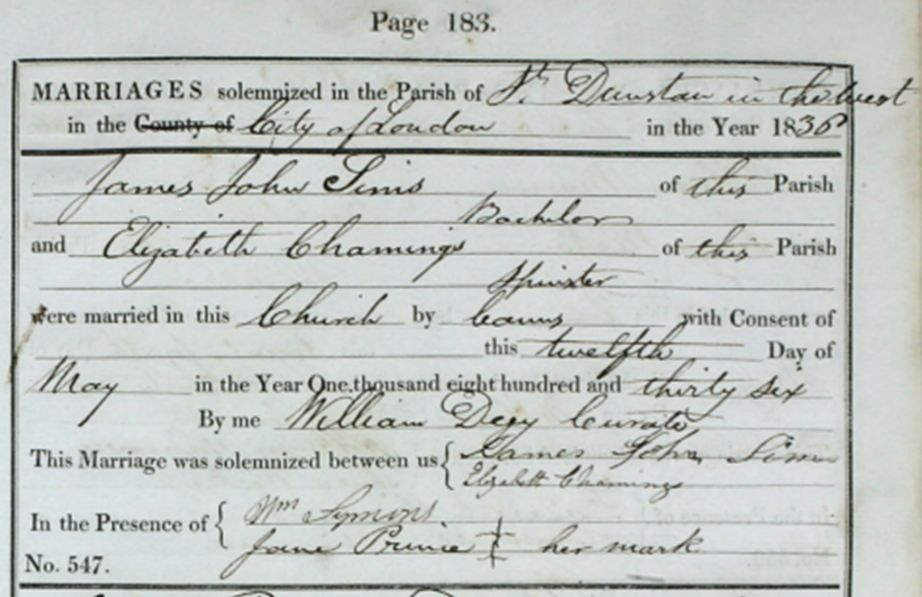 Page 183.
MARRIAGES solemnized in the Parish of St. Dunstan in the West
in the County of City of London in the Year 1836
James John Sims of this Parish
Bachelor
and Elizabeth Chamings of this Parish
Spinster
were married in this Church by banns with Consent of
this twelfth Day of
May in the Year One thousand eight hundred and thirty six
By me William Curate
This Marriage was solemnized between us { James John Sims
Elizabeth Chamings
In the Presence of { Wm Symons
Jane Prince ‡ her mark
No. 547.